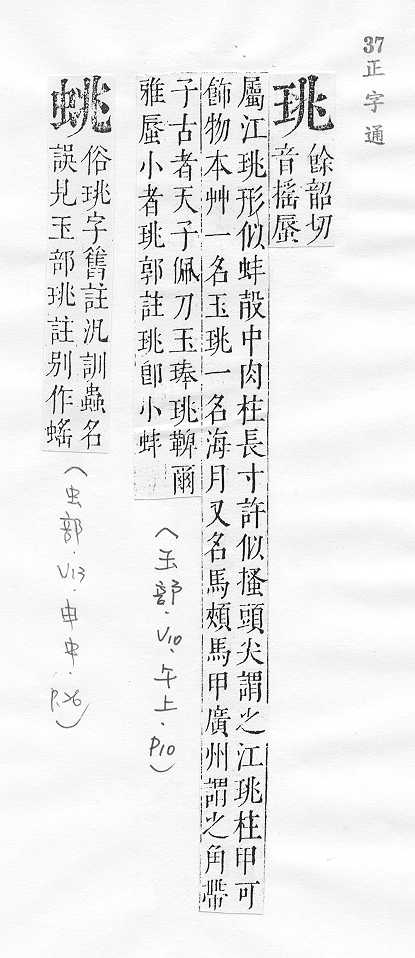 37
正字通
珧
餘韶切
音搖蜃
屬江珧形似蚌殼中肉柱長寸許似搔頭尖謂之江珧柱甲可
飾物本艸一名玉珧一名海月又名馬頰馬甲廣州謂之角帶
子古者天子佩刀玉琫珧鞞爾
雅蜃小者珧郭註珧卽小蚌
(玉部·V10·午上·P10)
蛛
俗珧字舊註汎訓蟲名
誤旣玉部珧註別作蟕
(虫部·V13·申中·P.26)